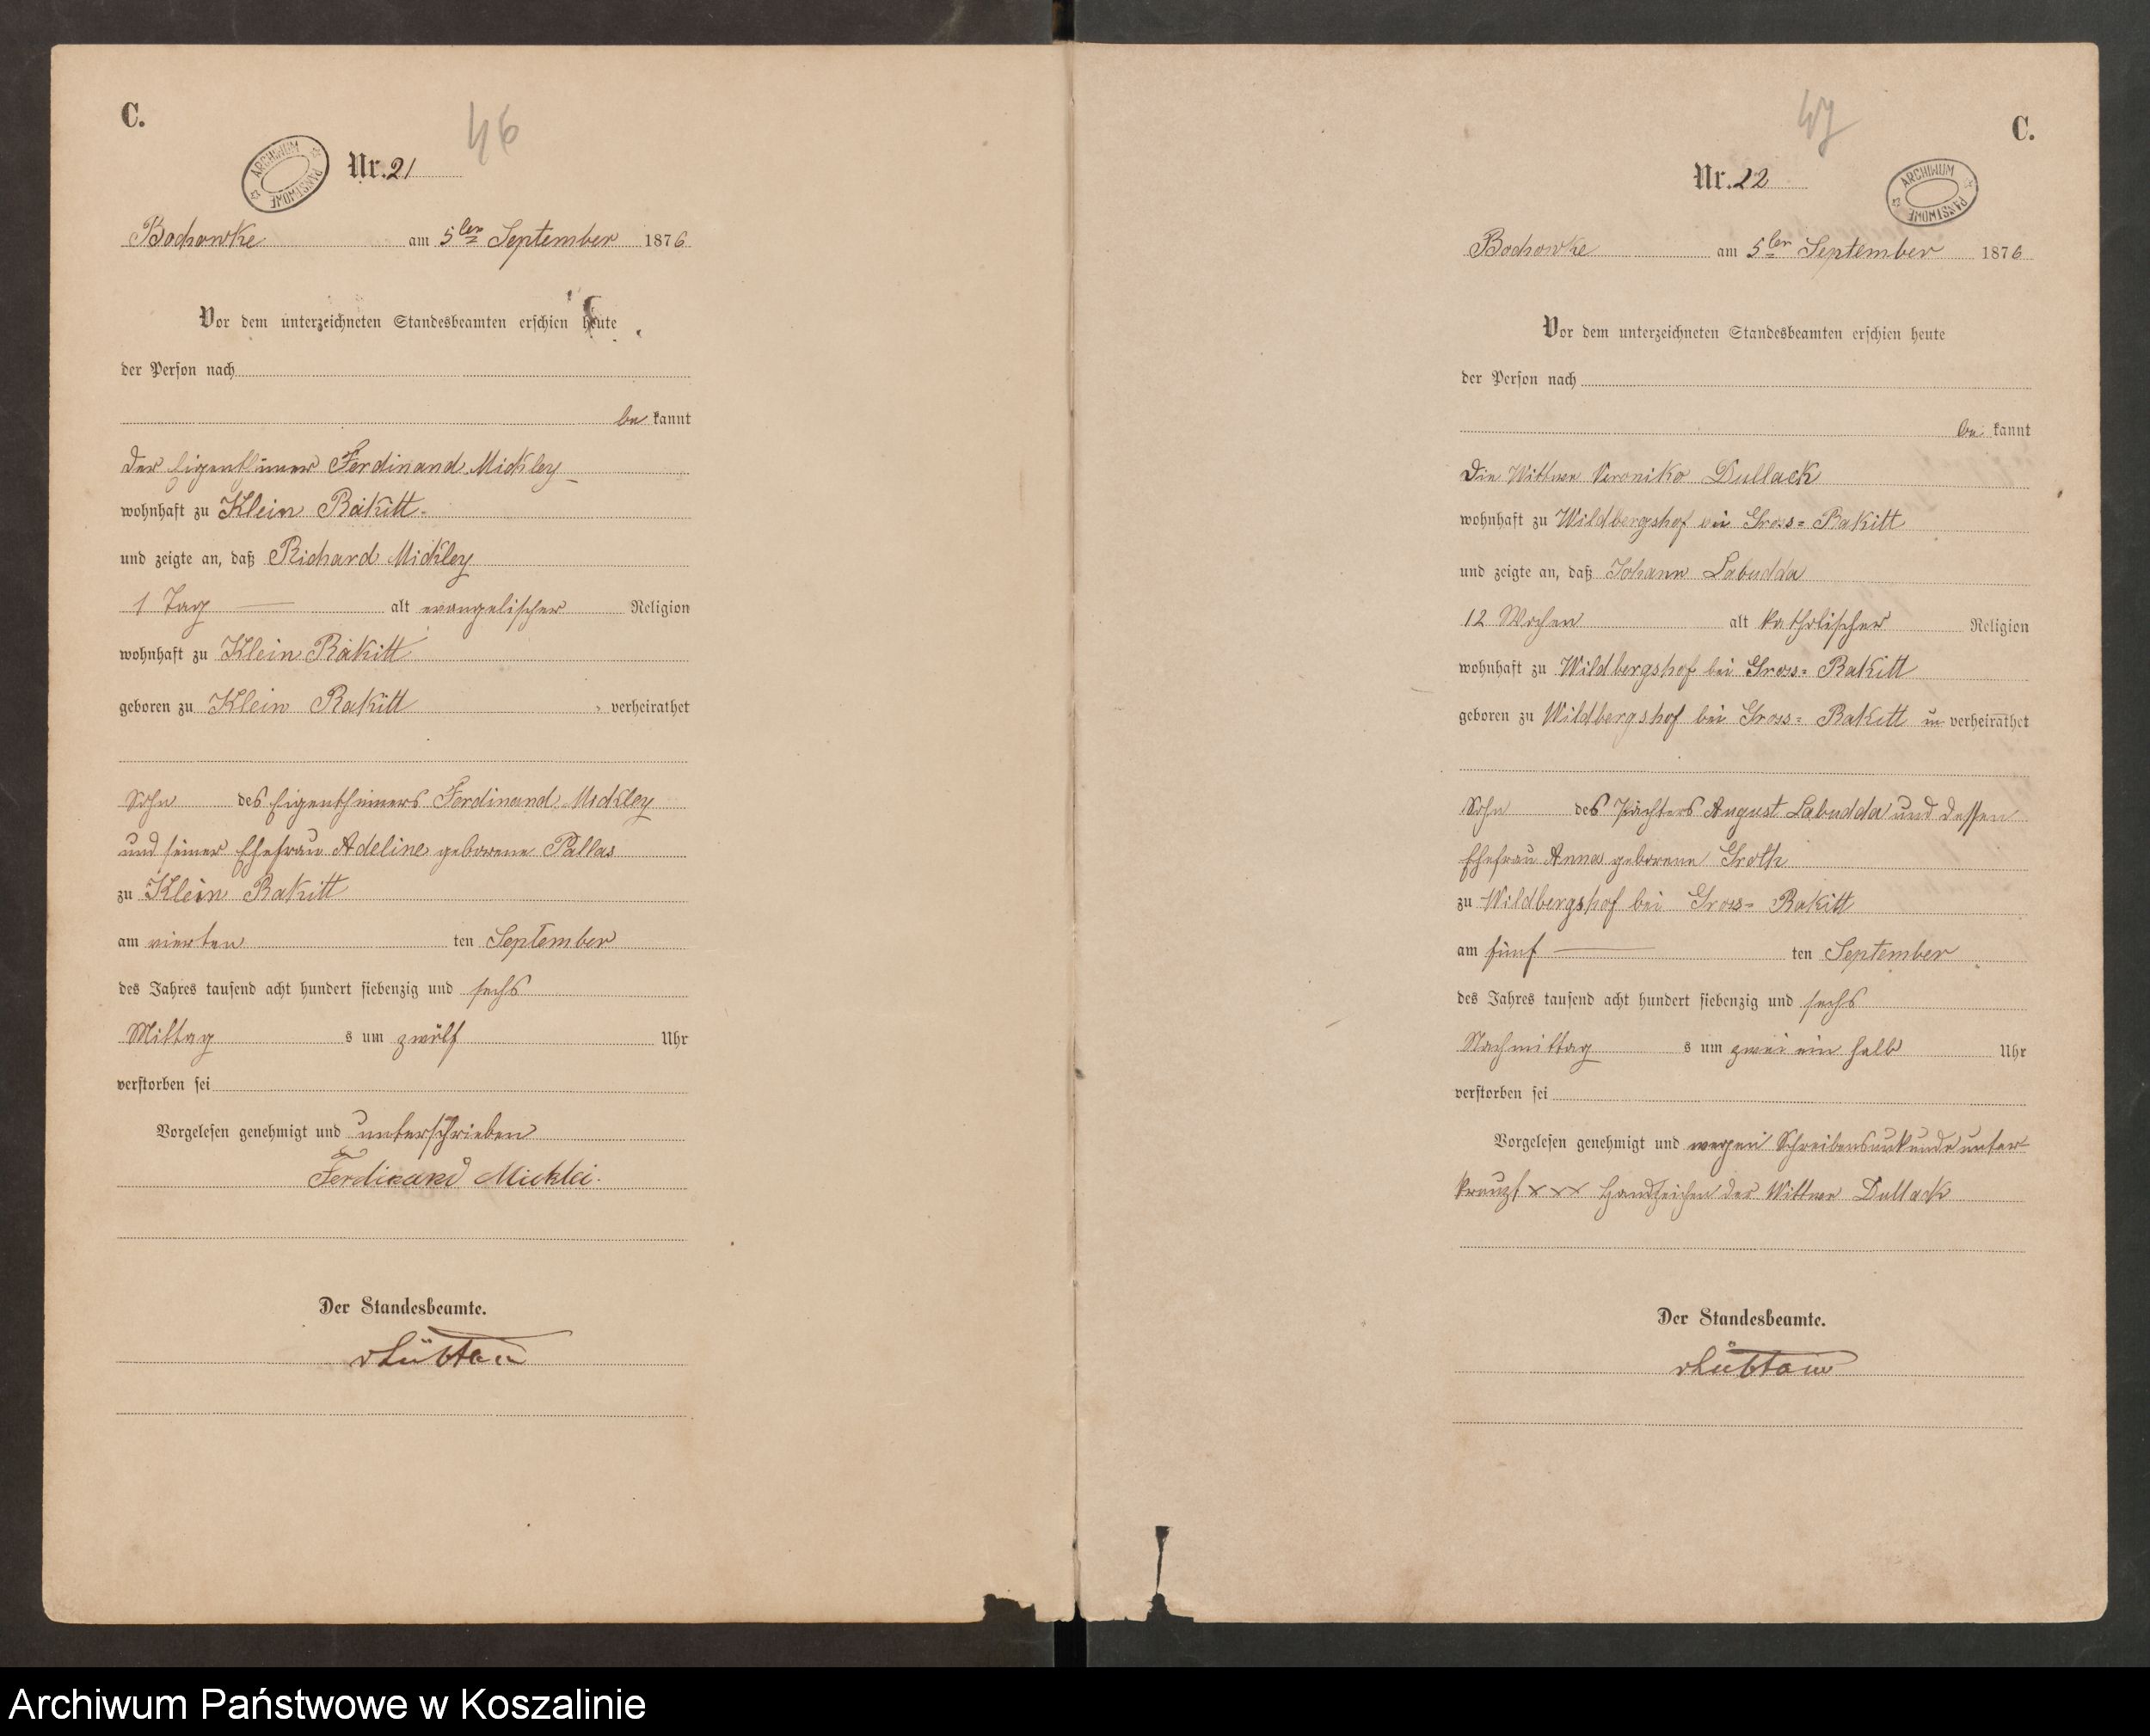 C.
46
ARCHIWUM PAŃSTWOWE
Nr. 21
Bochowke am 5ten September 1876
Vor dem unterzeichneten Standesbeamten erschien heute
der Person nach
be kannt
der Eigenthümer Ferdinand Mickley
wohnhaft zu Klein Rakitt
und zeigte an, daß Richard Mickley
1 Tag — alt evangelischer Religion
wohnhaft zu Klein Rakitt
geboren zu Klein Rakitt verheirathet
Sohn des Eigenthümers Ferdinand Mickley
und seiner Ehefrau Adeline geborene Pallas
zu Klein Rakitt
am vierten ten September
des Jahres tausend acht hundert siebenzig und sechs
Mittag s um zwölf Uhr
verstorben sei
Vorgelesen genehmigt und unterschrieben
Ferdinand Micklei.
Der Standesbeamte.
vLübtow
47
C.
Nr. 22
ARCHIWUM PAŃSTWOWE
Bochowke am 5ten September 1876
Vor dem unterzeichneten Standesbeamten erschien heute
der Person nach
be kannt
Die Wittwe Veronika Dullack
wohnhaft zu Wildbergshof bei Gross-Rakitt
und zeigte an, daß Johann Labudda
12 Wochen alt katholischer Religion
wohnhaft zu Wildbergshof bei Gross-Rakitt
geboren zu Wildbergshof bei Gross-Rakitt un verheirathet
Sohn des Pächters August Labudda und dessen
Ehefrau Anna geborene Groth
zu Wildbergshof bei Gross-Rakitt
am fünf — ten September
des Jahres tausend acht hundert siebenzig und sechs
Nachmittag s um zwei ein halb Uhr
verstorben sei
Vorgelesen genehmigt und wegen Schreibensunkunde unter-
kreuzt xxx Handzeichen der Wittwe Dullack
Der Standesbeamte.
vLübtow
Archiwum Państwowe w Koszalinie